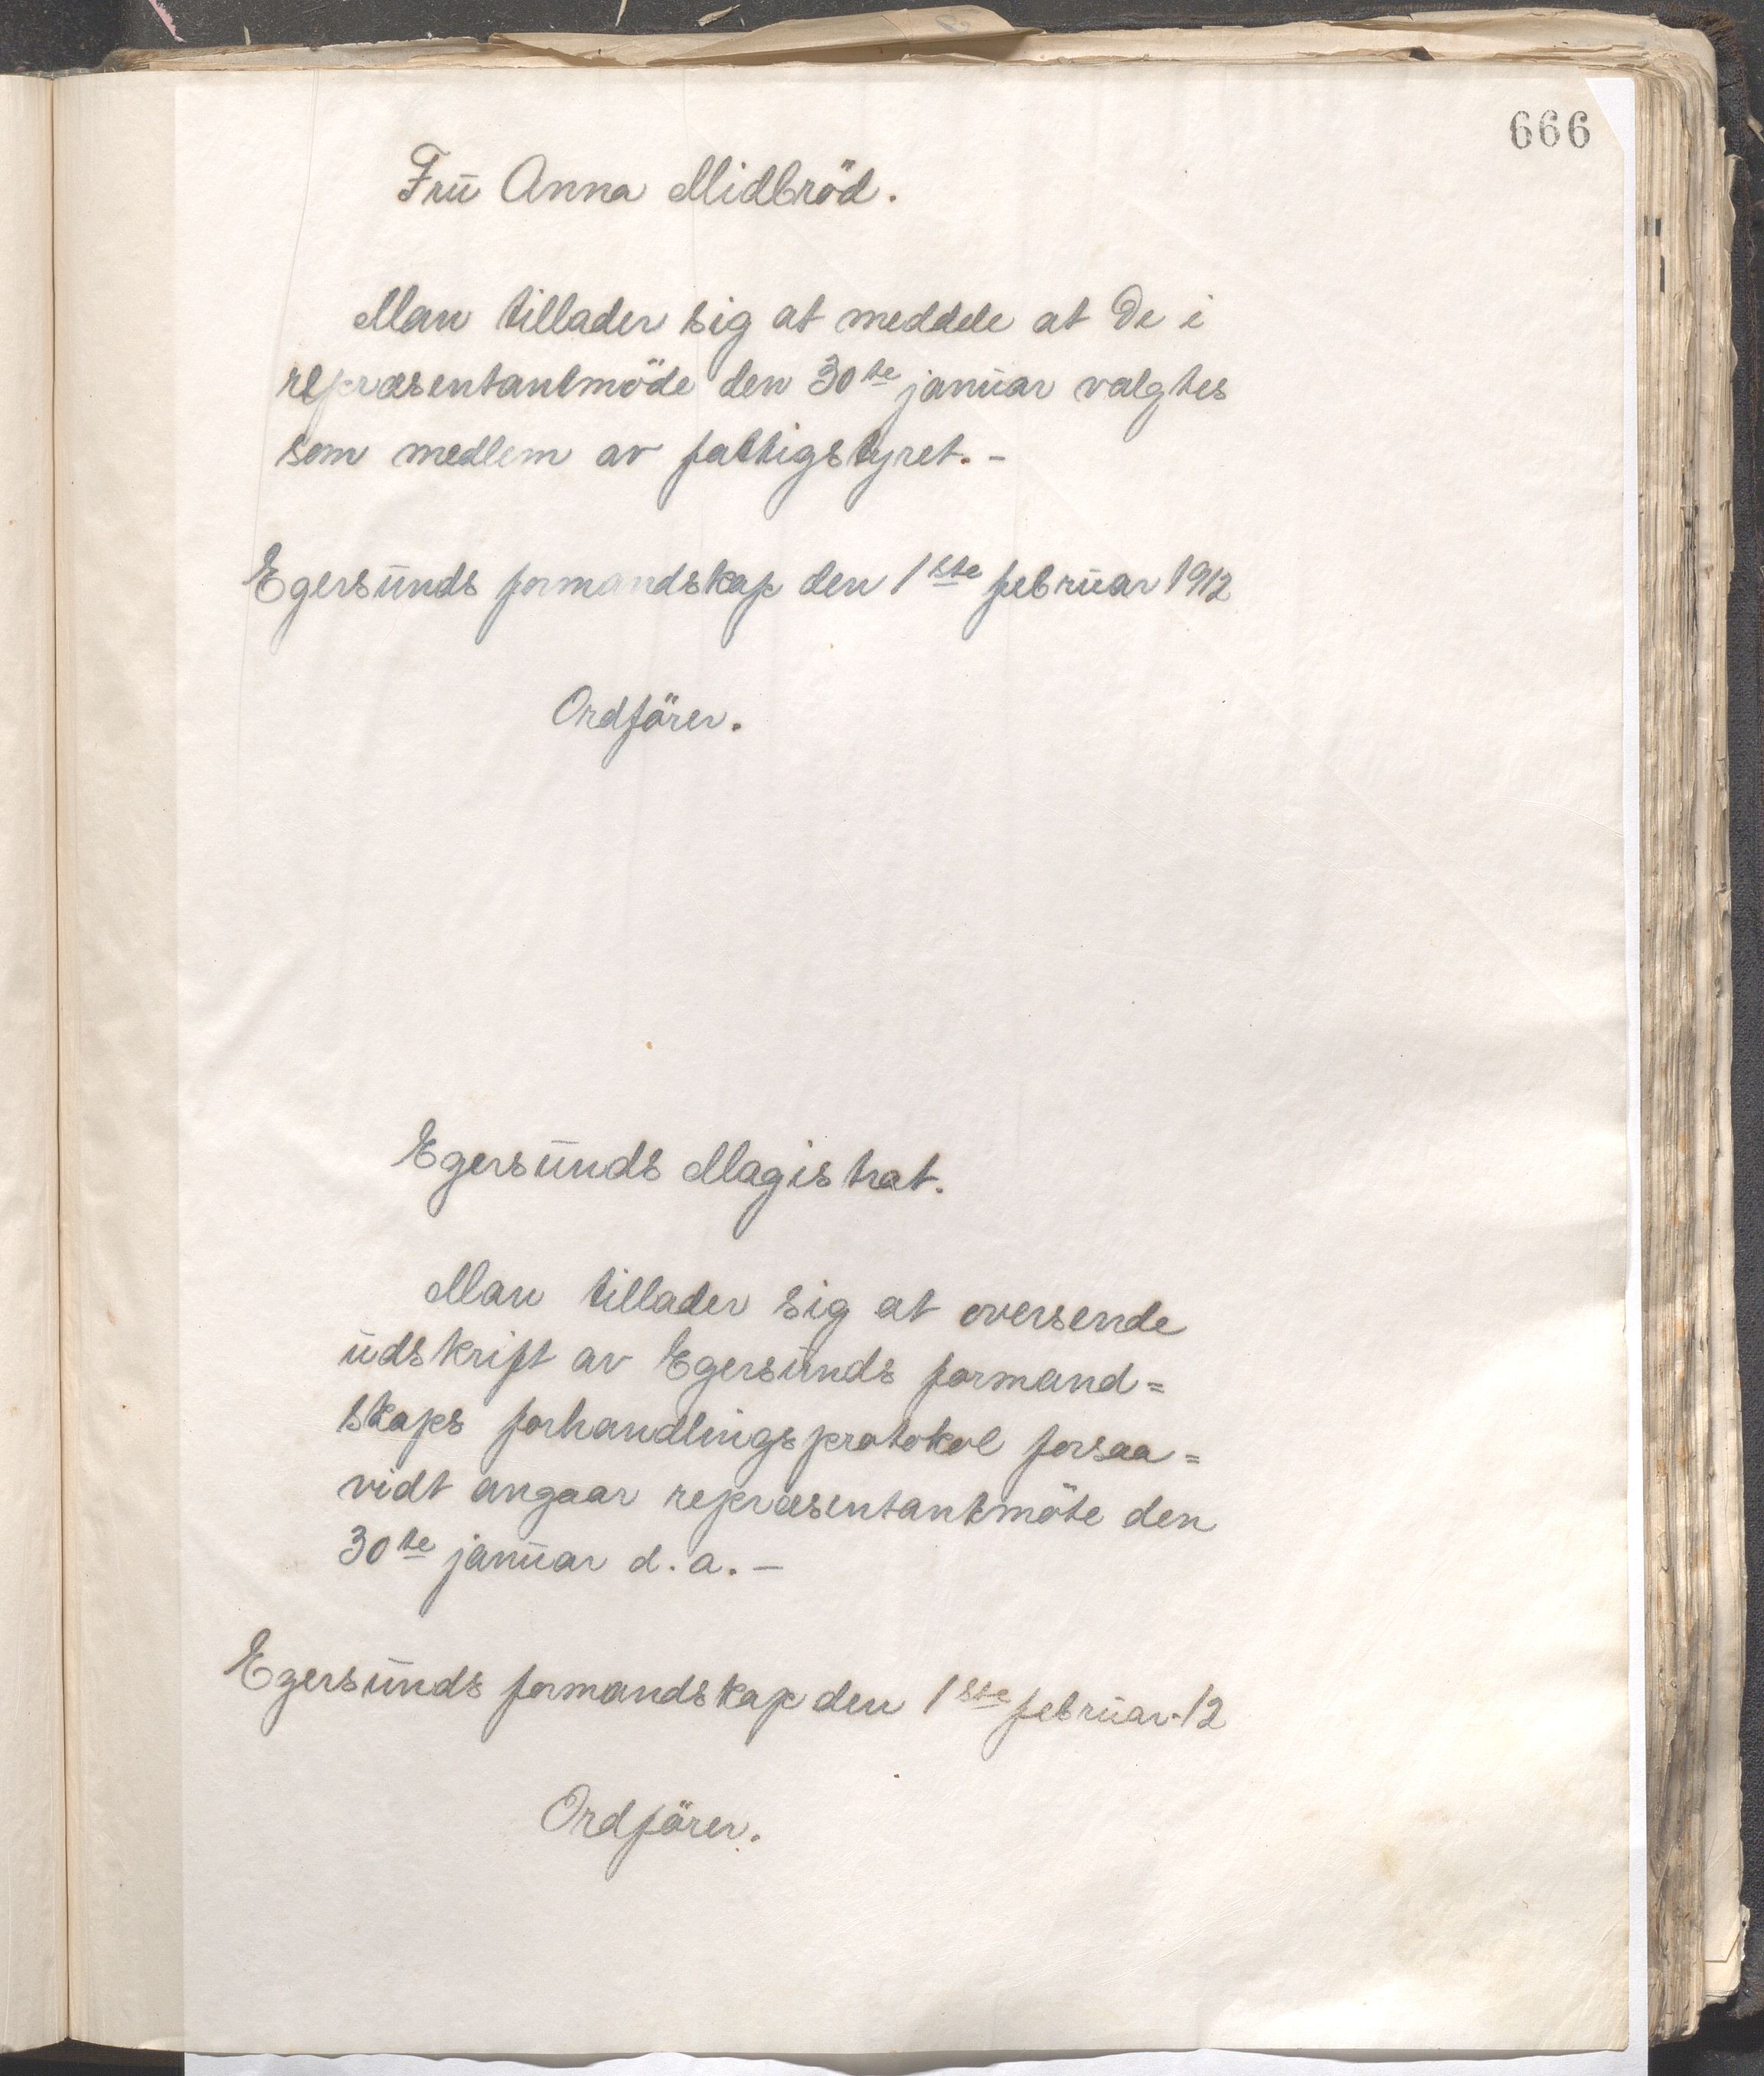 666
Frū Anna Midbröd.
Man tillader sig at meddele at De i
repræsentantmöde den 30te janūar valgtes
som medlem av fattigstyret. -
Egersūnds formandskap den 1ste febrūar 1912
Ordförer.
Egersūnds Magistrat.
Man tillader sig at oversende
ūdskrift av Egersūnds formand=
skaps forhandlingsprotokol forsaa=
vidt angaar repræsentantmöte den
30te janūar d. a. -
Egersūnds formandskap den 1ste febrūar-12
Ordförer.